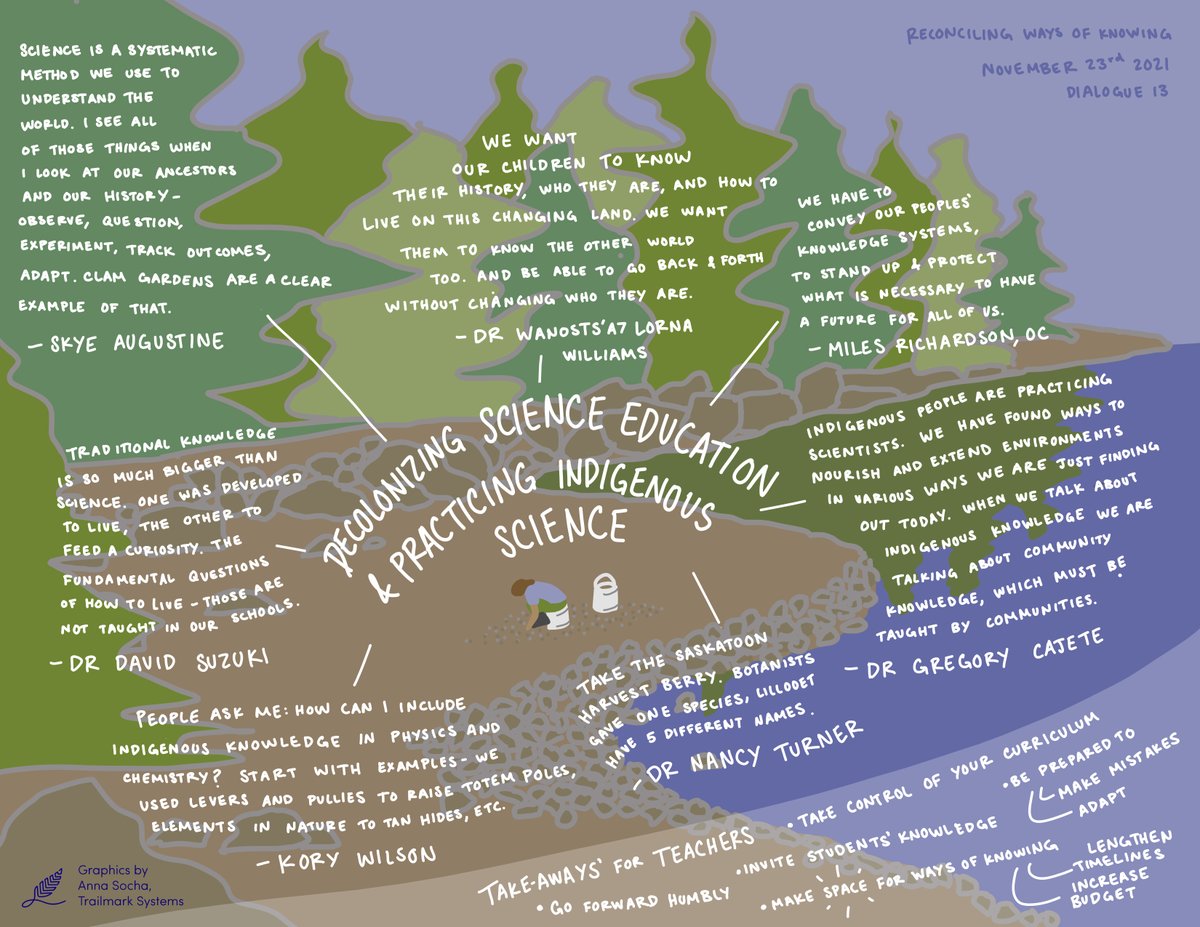 RECONCILING WAYS OF KNOWING
NOVEMBER 23rd 2021
DIALOGUE 13
SCIENCE IS A SYSTEMATIC
METHOD WE USE TO
UNDERSTAND THE
WORLD. I SEE ALL
OF THOSE THINGS WHEN
I LOOK AT OUR ANCESTORS
AND OUR HISTORY-
OBSERVE, QUESTION,
EXPERIMENT, TRACK OUTCOMES,
ADAPT. CLAM GARDENS ARE A CLEAR
EXAMPLE OF THAT.
- SKYE AUGUSTINE
WE WANT
OUR CHILDREN TO KNOW
THEIR HISTORY, WHO THEY ARE, AND HOW TO
LIVE ON THIS CHANGING LAND. WE WANT
THEM TO KNOW THE OTHER WORLD
TOO. AND BE ABLE TO GO BACK & FORTH
WITHOUT CHANGING WHO THEY ARE.
- DR WANOSTS'A7 LORNA
WILLIAMS
WE HAVE TO
CONVEY OUR PEOPLES'
KNOWLEDGE SYSTEMS,
TO STAND UP & PROTECT
WHAT IS NECESSARY TO HAVE
A FUTURE FOR ALL OF US.
- MILES RICHARDSON, OC
DECOLONIZING SCIENCE EDUCATION
& PRACTICING INDIGENOUS
SCIENCE
TRADITIONAL KNOWLEDGE
IS SO MUCH BIGGER THAN
SCIENCE. ONE WAS DEVELOPED
TO LIVE, THE OTHER TO
FEED A CURIOSITY. THE
FUNDAMENTAL QUESTIONS
OF HOW TO LIVE - THOSE ARE
NOT TAUGHT IN OUR SCHOOLS.
- DR DAVID SUZUKI
INDIGENOUS PEOPLE ARE PRACTICING
SCIENTISTS. WE HAVE FOUND WAYS TO
NOURISH AND EXTEND ENVIRONMENTS
IN VARIOUS WAYS WE ARE JUST FINDING
OUT TODAY. WHEN WE TALK ABOUT
INDIGENOUS KNOWLEDGE WE ARE
TALKING ABOUT COMMUNITY
KNOWLEDGE, WHICH MUST BE
TAUGHT BY COMMUNITIES.
- DR GREGORY CAJETE
PEOPLE ASK ME: HOW CAN I INCLUDE
INDIGENOUS KNOWLEDGE IN PHYSICS AND
CHEMISTRY? START WITH EXAMPLES - WE
USED LEVERS AND PULLIES TO RAISE TOTEM POLES,
ELEMENTS IN NATURE TO TAN HIDES, ETC.
- KORY WILSON
TAKE THE SASKATOON
HARVEST BERRY. BOTANISTS
GAVE ONE SPECIES, LILLODET
HAVE 5 DIFFERENT NAMES.
- DR NANCY TURNER
TAKE-AWAYS' FOR TEACHERS
• GO FORWARD HUMBLY
• TAKE CONTROL OF YOUR CURRICULUM
• INVITE STUDENTS' KNOWLEDGE
• MAKE SPACE FOR WAYS OF KNOWING
LENGTHEN
TIMELINES
INCREASE
BUDGET
• BE PREPARED TO
MAKE MISTAKES
ADAPT
Graphics by
Anna Socha,
Trailmark Systems